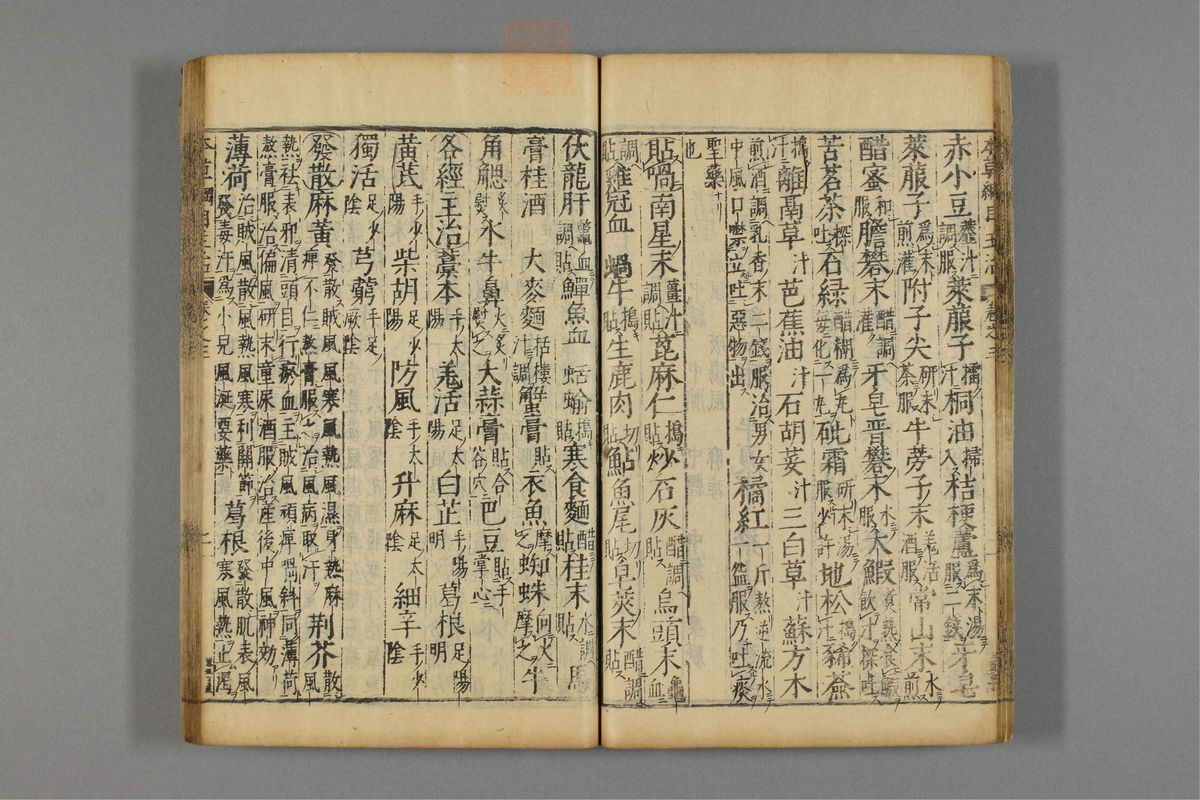 赤小豆汁調服萊菔子擂汁桐油掃入桔梗蘆為末湯服二錢牙皂
萊菔子為末煎灌附子尖研末茶服牛蒡子末羌活酒服常山末水煎
醋蜜和服膽礬末醋調灌牙皂晉礬末水服大鰕煮熟食鰕飲汁探吐
苦茗茶探吐石緑醋糊為丸每化一丸砒霜研末湯服少許地松搗汁豨薟
搗汁離鬲草汁芭蕉油汁石胡荽汁三白草汁蘇方木
煎酒調乳香末二錢服治男女中風口噤立吐惡物出橘紅一斤熬逆流水一盌服乃吐痰
聖藥也
貼喎南星末薑汁調貼萆麻仁搗貼炒石灰醋調貼烏頭末龜血
調貼雞冠血蝸牛搗貼生鹿肉切貼鮎魚尾切貼皂莢末醋調貼
伏龍肝鼈血調貼鱓魚血蛞蝓搗貼寒食麵醋貼桂末水調貼馬
膏桂酒大麥麵栝樓汁調蟹膏貼衣魚摩之蜘蛛向火摩之牛
角䚡炙熨水牛鼻火炙熨之大蒜膏貼合谷穴巴豆貼手掌心
各經主治藁本手太陽羌活足太陽白芷手陽明葛根足陽明
黃芪手少陽柴胡足少陽防風手太陰升麻足太陰細辛手少陰
獨活足少陰芎藭手足厥陰
發散麻黃發散賊風風寒風熱風濕身熱麻痺不仁熬膏服之治風病取汗荊芥散風
熱袪表邪清頭目行瘀血主賊風頑痺喎斜同薄荷熬膏服治偏風研末童尿酒服治產後中風神効
薄荷治賊風散風熱風寒利關節發毒汗為小兒風涎要藥葛根發散肌表風寒風熱止渴